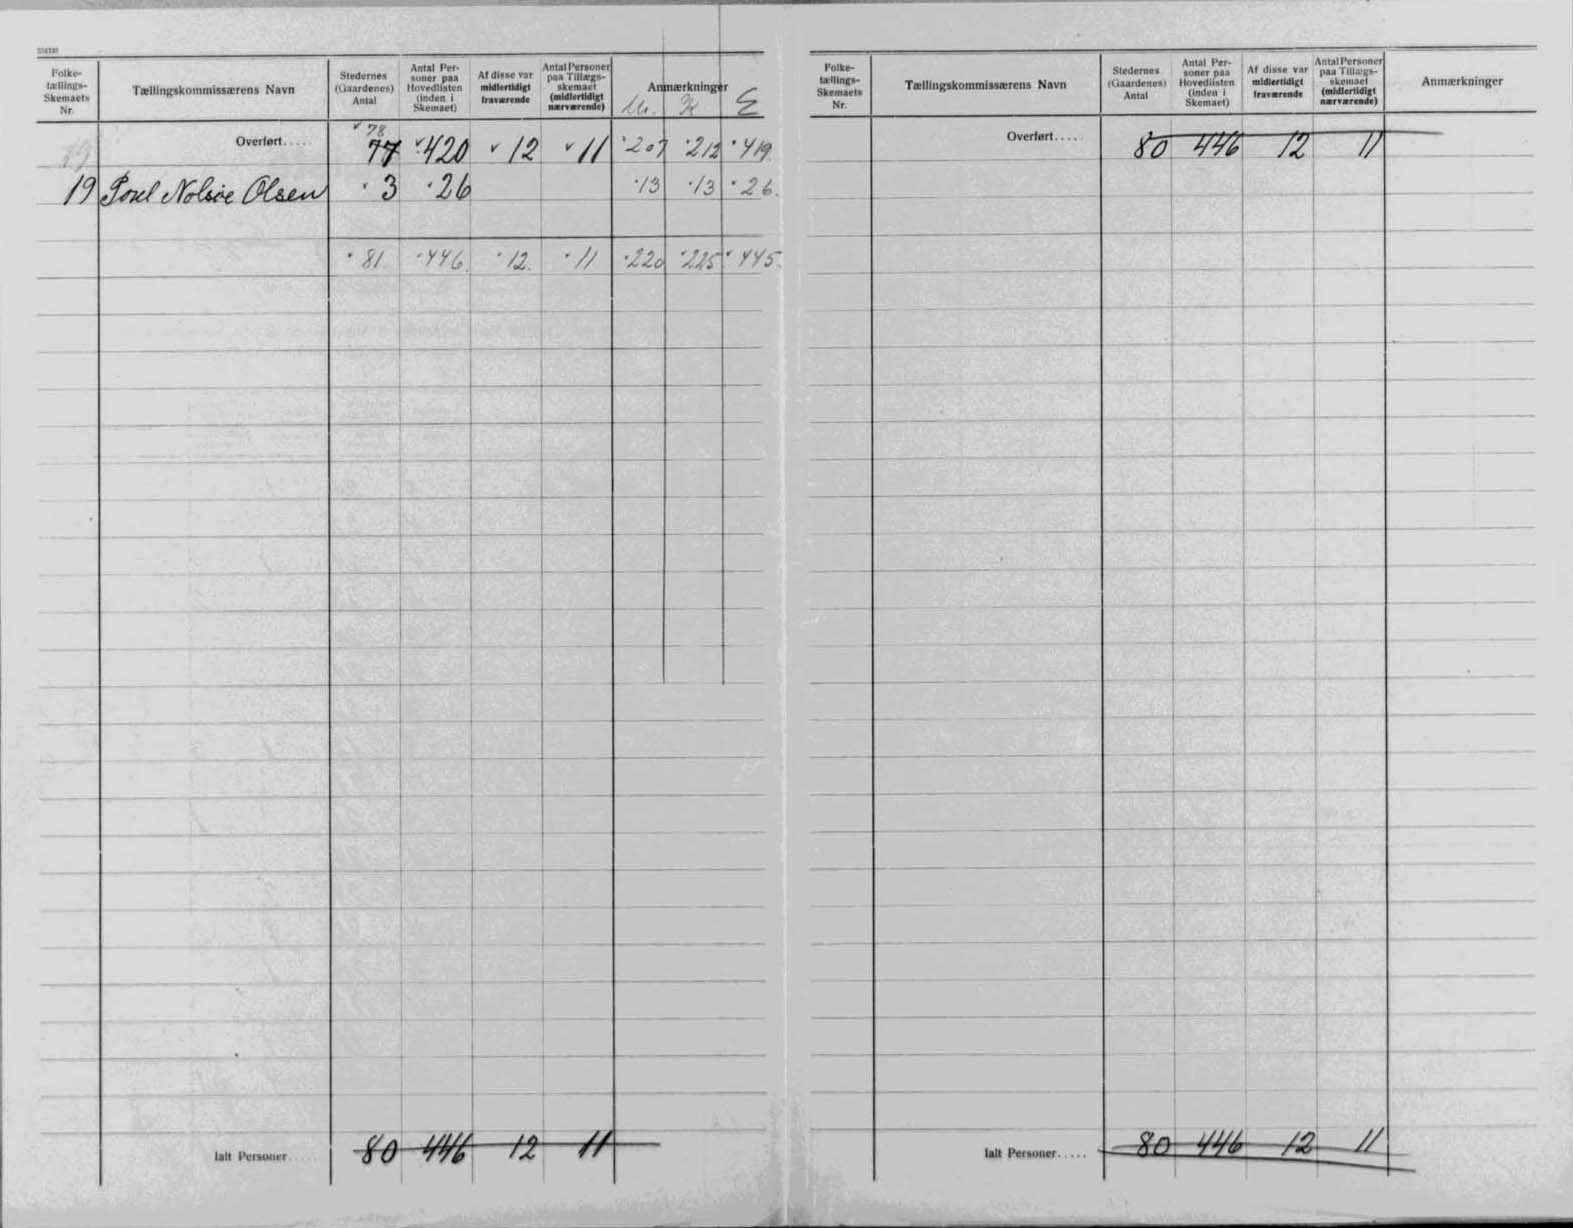 Folke-
tællings-
Skemaets
Nr.
Tællingskommissærens Navn
Stedernes
(Gaardenes)
Antal
Antal Per-
soner paa
Hovedlisten
(inden i
Skemaet)
Af disse var
midlertidigt
fraværende
Antal Personer
paa Tillægs-
skemaet
(midlertidigt
nærværende)
Anmærkninger
M. K Σ
78
Overført..... 77 420 12 11 207 212 419
19 Poul Nolsøe Olsen 3 26 13 13 26
81 446 12 11 220 225 445
Ialt Personer..... 80 446 12 11
Folke-
tællings-
Skemaets
Nr.
Tællingskommissærens Navn
Stedernes
(Gaardenes)
Antal
Antal Per-
soner paa
Hovedlisten
(inden i
Skemaet)
Af disse var
midlertidigt
fraværende
Antal Personer
paa Tillægs-
skemaet
(midlertidigt
nærværende)
Anmærkninger
Overført..... 80 446 12 11
Ialt Personer..... 80 446 12 11